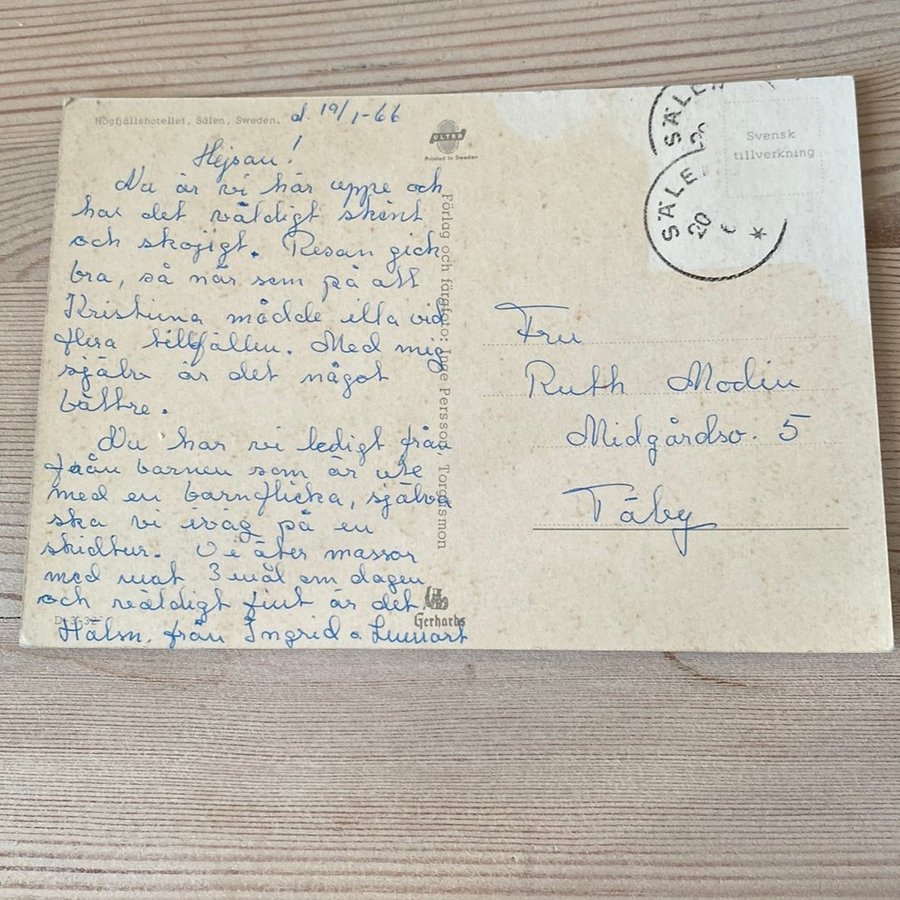 Högfjällshotellet, Sälen, Sweden. d. 19/1-66
Hejsan!
Nu är vi här uppe och
har det väldigt skönt
och skojigt. Resan gick
bra, så när som på att
Kristiina mådde illa vid
flera tillfällen. Med mig
själv är det något
bättre.
Nu har vi ledigt från
från barnen som är ute
med en barnflicka, själva
ska vi iväg på en
skidtur. Vi äter massor
med mat 3 mål om dagen
och väldigt fint är det.
Hälsn. från Ingrid o Lennart
ULTRA
Printed in Sweden
Förlag och färgfoto: Inge Persson, Torgåsmon
Gerhards
SÄLEN
SÄLE
20
Svensk
tillverkning
Fru
Ruth Modin
Midgårdsv. 5
Täby